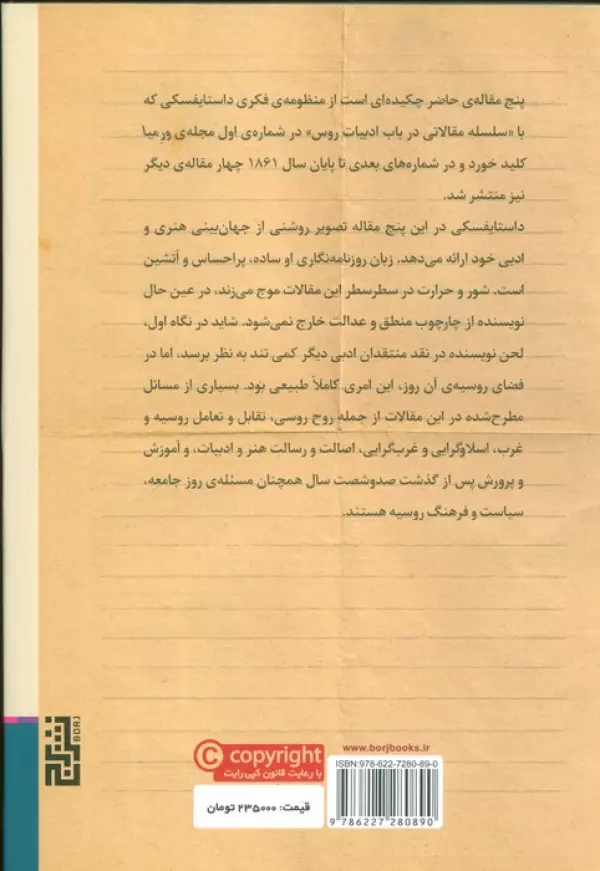 پنج مقاله‌ی حاضر چکیده‌ای است از منظومه‌ی فکری داستایفسکی که
با «سلسله مقالاتی در باب ادبیات روس» در شماره‌ی اول مجله‌ی ورمیا
کلید خورد و در شماره‌های بعدی تا پایان سال ۱۸۶۱ چهار مقاله‌ی دیگر
نیز منتشر شد.
داستایفسکی در این پنج مقاله تصویر روشنی از جهان‌بینی هنری و
ادبی خود ارائه می‌دهد. زبان روزنامه‌نگاری او ساده، پراحساس و آتشین
است. شور و حرارت در سطرسطر این مقالات موج می‌زند، در عین حال
نویسنده از چارچوب منطق و عدالت خارج نمی‌شود. شاید در نگاه اول،
لحن نویسنده در نقد منتقدان ادبی دیگر کمی تند به نظر برسد، اما در
فضای روسیه‌ی آن روز، این امری کاملاً طبیعی بود. بسیاری از مسائل
مطرح‌شده در این مقالات از جمله روح روسی، تقابل و تعامل روسیه و
غرب، اسلاوگرایی و غرب‌گرایی، اصالت و رسالت هنر و ادبیات، و آموزش
و پرورش پس از گذشت صدوشصت سال همچنان مسئله‌ی روز جامعه،
سیاست و فرهنگ روسیه هستند.
برج
BORJ
© copyright
با رعایت قانون کپی‌رایت
قیمت: ۲۳۵۰۰۰ تومان
www.borjbooks.ir
ISBN:978-622-7280-89-0
9 786227 280890